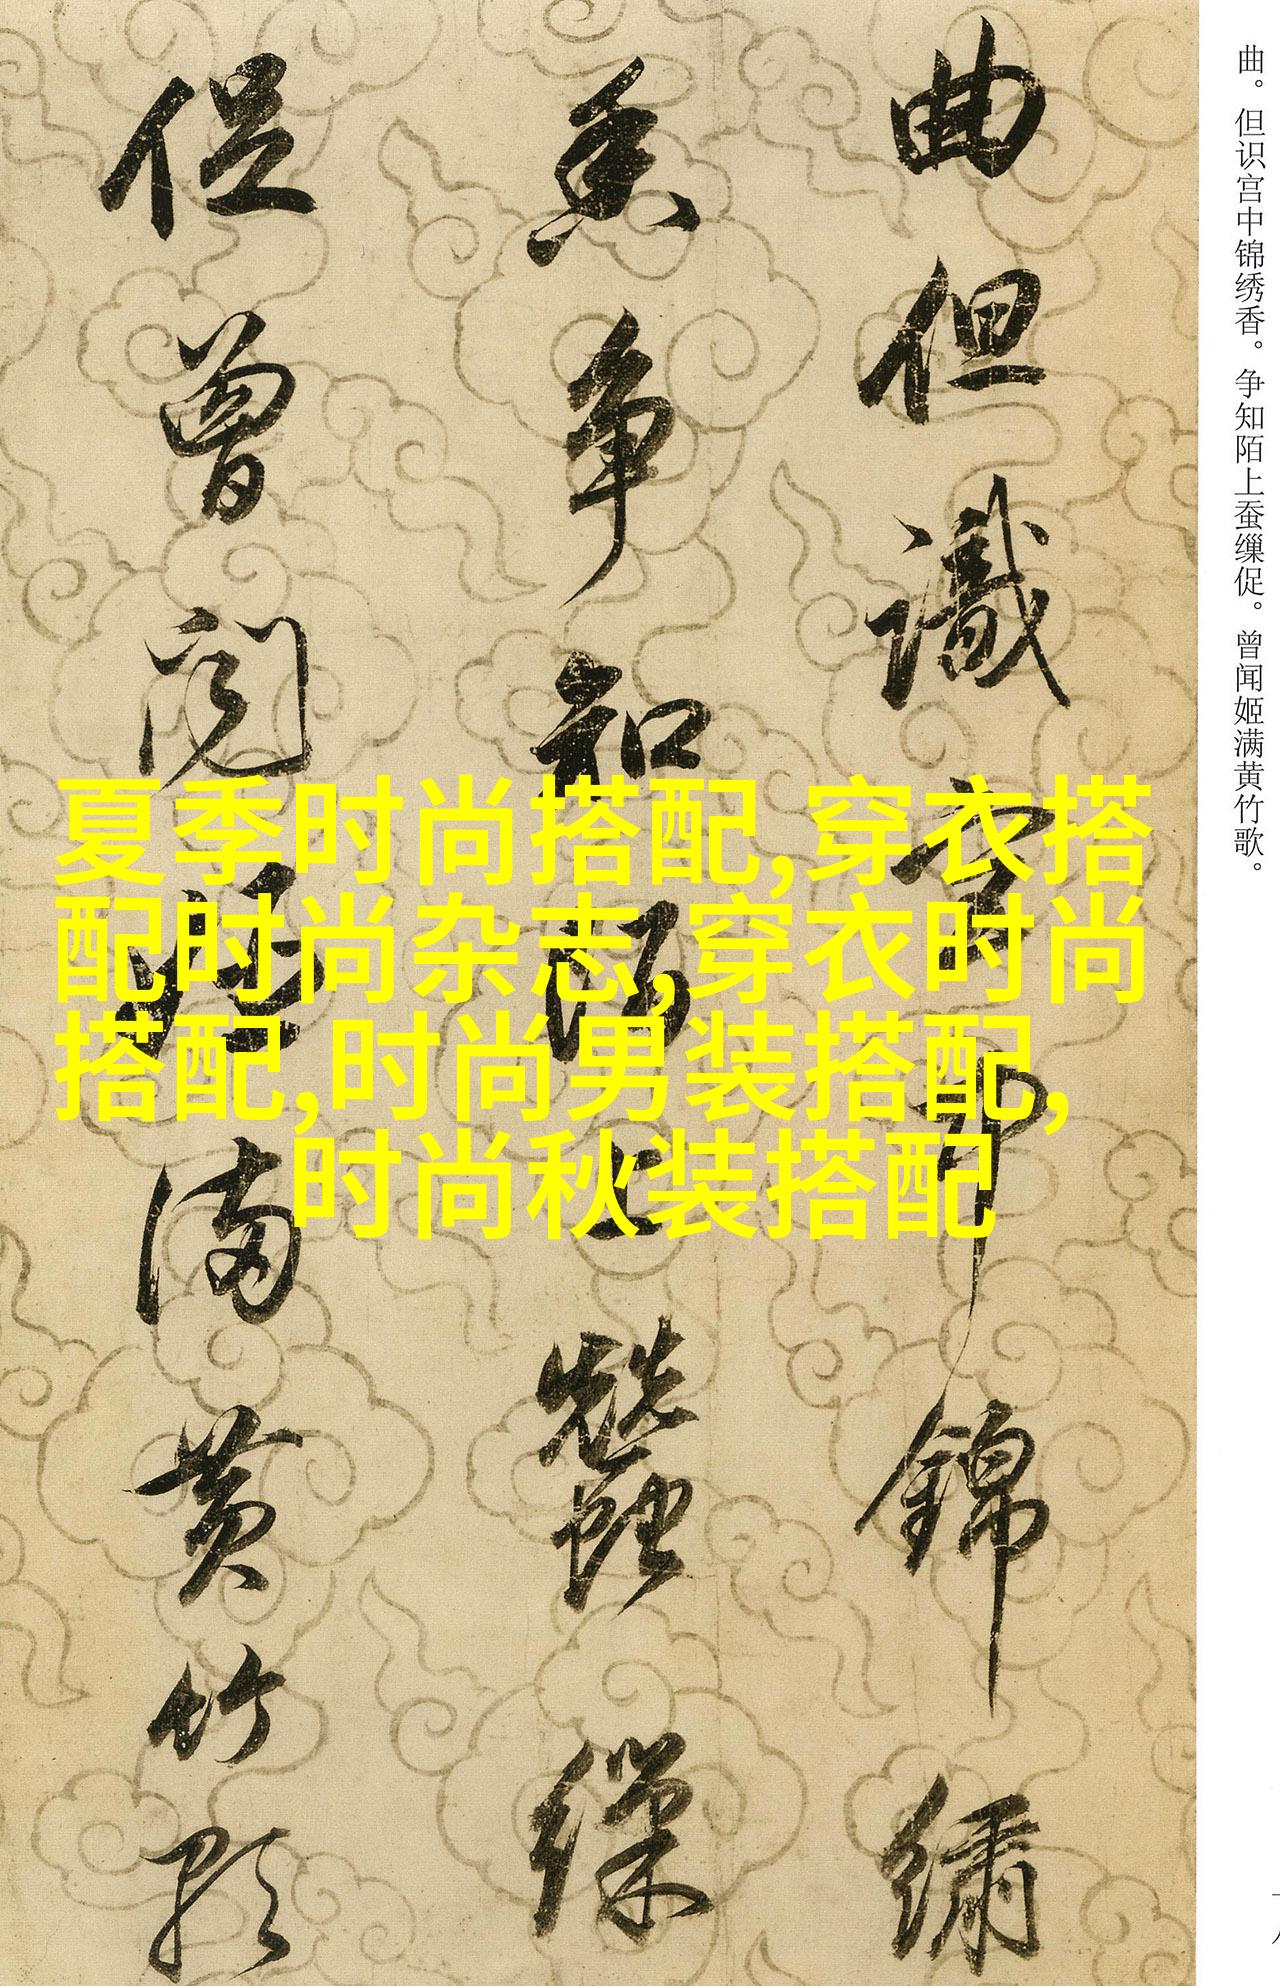 曲。但识宫中锦绣香。争知陌上蚕缫促。曾闻姬满黄竹歌。
曲但識宫中錦繡
香争知陌上蠶繅
促曾闻姬满黄竹歌
夏季时尚搭配,穿衣搭
配时尚杂志,穿衣时尚
搭配,时尚男装搭配,
时尚秋装搭配